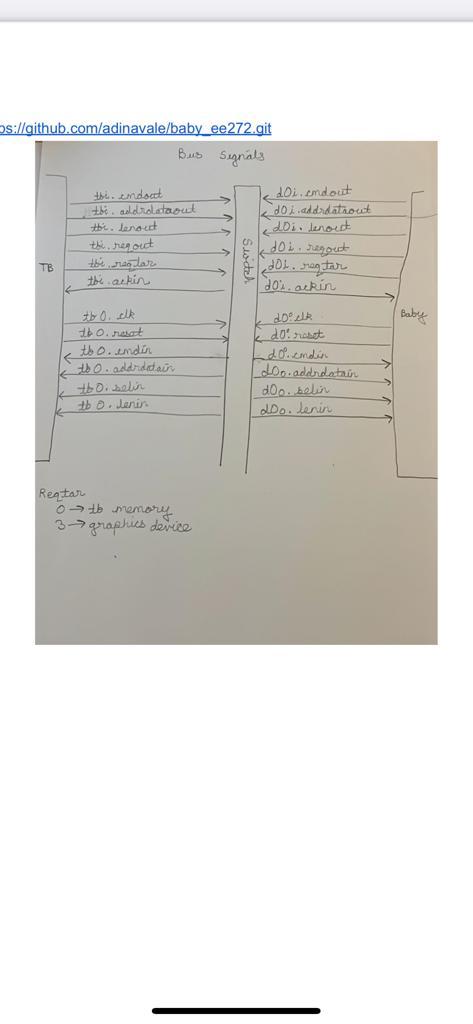 ps://github.com/adinavale/baby_ee272.git
Bus Signals
TB
tbi. cmdout
tbi. addrdataout
tbi. lenout
tbi. reqout
tbi. reqtar
tbi. ackin
tb O. clk
tb O. reset
tb O. cmdin
tb O. addrdatain
tb O. selin
tb O. lenin
Switch
d0i. cmdout
d0i. addrdataout
d0i. lenout
d0i. reqout
d0i. reqtar
d0i. ackin
d0o clk
d0o reset
d0o. cmdin
d0o. addrdatain
d0o. selin
d0o. lenin
Baby
Reqtar
0 → tb memory
3 → graphics device